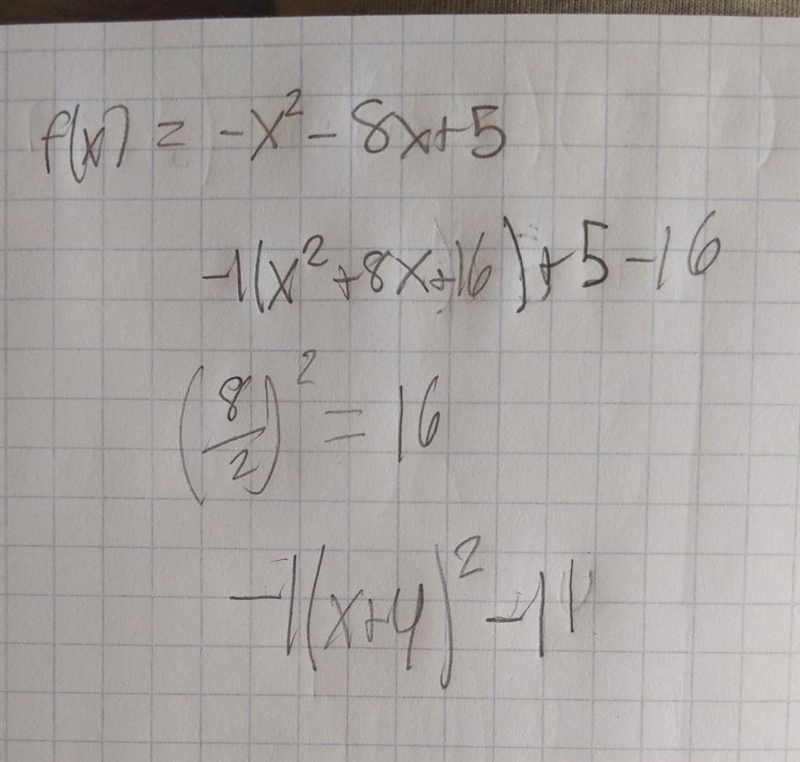 f(x) = -x² - 8x+5
-1(x²+8x+16)+5-16
(8/2)² = 16
-1(x+4)² -11